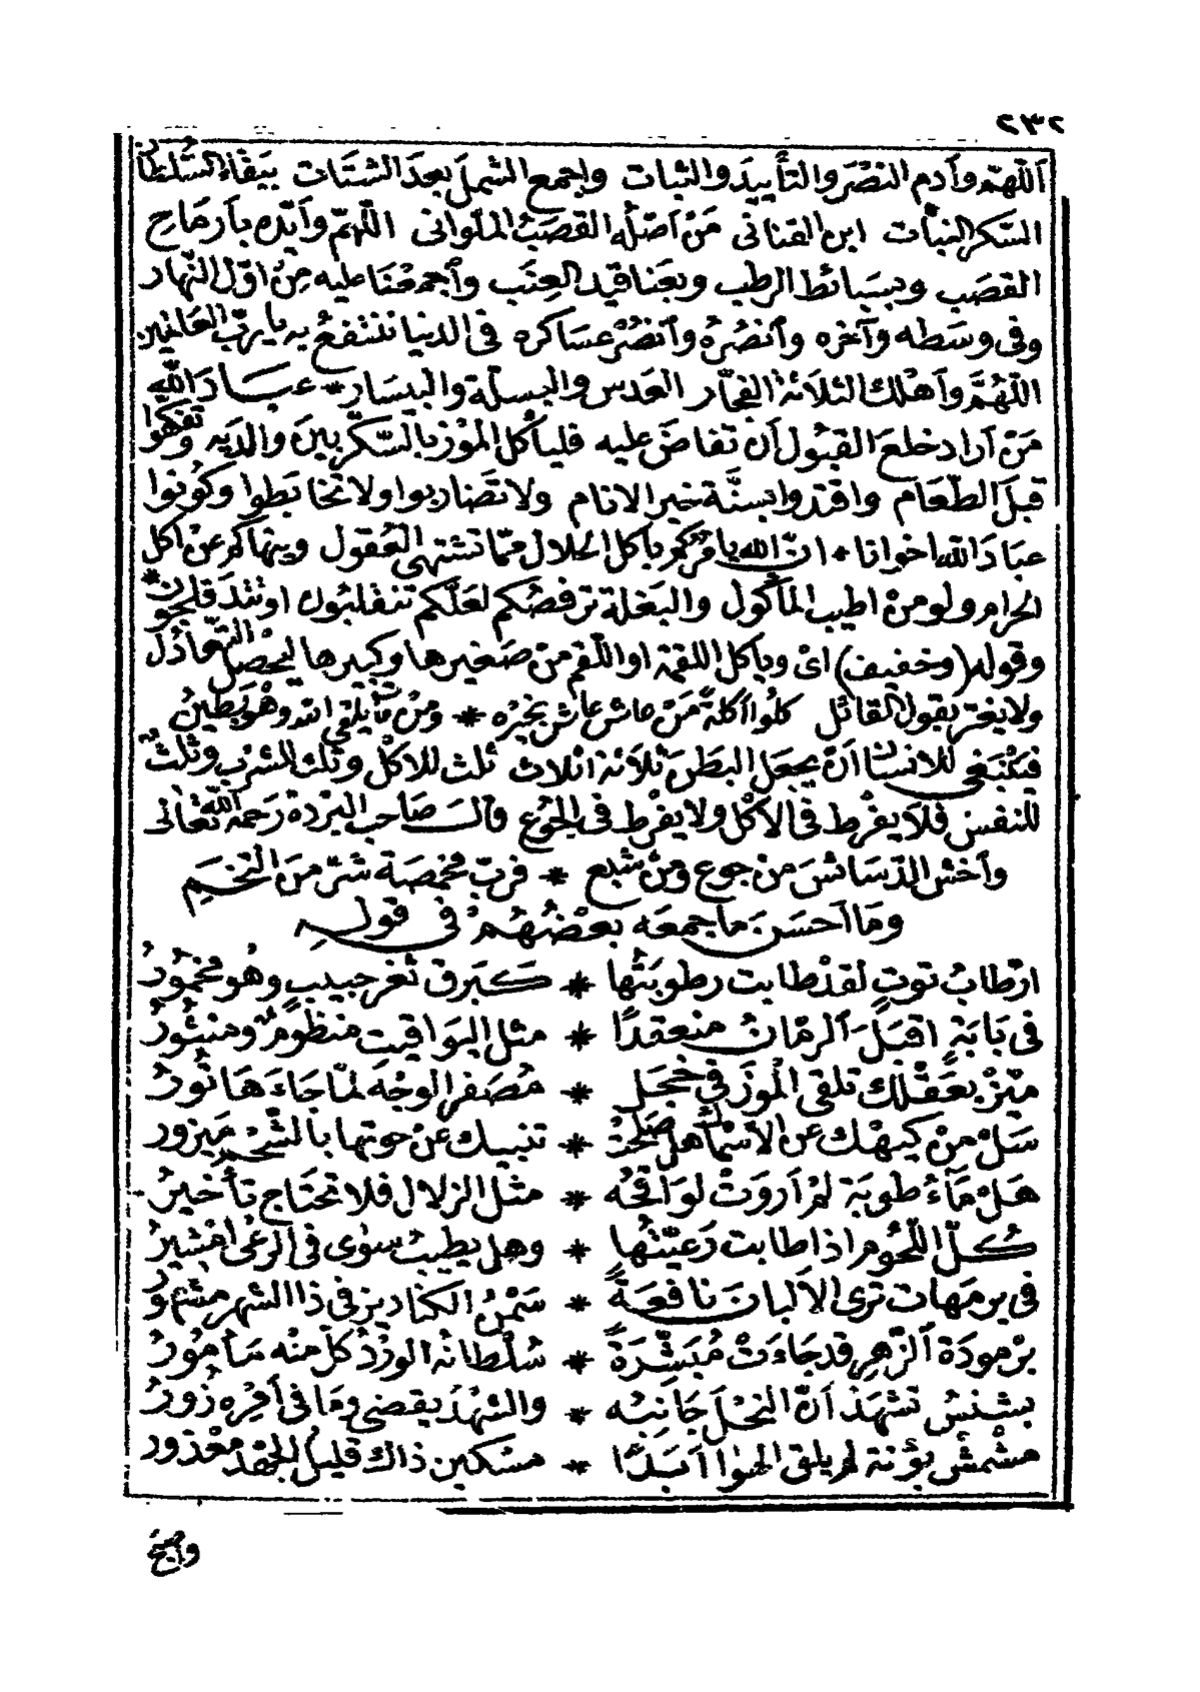 ٢٣٢
اَللّهمّ وأدم النصْرَ والتأييدَ والثبات واجمع الشملَ بعدَ الشتَات ببَقاء السُّلطان
السكر النبات ابن القنانى مَنْ اَصْلُه القصَبُ الملوانى اللّهمّ وأيّده بأرماح
القصَب وببسَائط الرطب وبعَناقيد العِنَب وأجمعْنا عليه مِنْ اوّل النّهار
وفى وسَطه وآخره وأنصُرْهُ وأنصُرْ عسَاكره فى الدنيا ننتفعُ به يا ربّ العَالمين
اللّهُمَّ وأهْلك الثلاثة الفجّار العدس والبسلّة والبيسَار * عبَادَ اللّه
مَنْ أراد خلعَ القبُول أن تفاضَ عليه فليأكل الموْز بالسّكّر بينَ والديه وتفكهّوا
قبلَ الطّعَام واقتدوا بسنَّة خير الانام ولا تَضاربوا ولا تخابَطوا وكُونوا
عبَادَ اللّه اخوانا * انّ اللّه يأمرُكم بأكل الحلال ممّا تشتهى العُقول وينهاكم عنْ أكل
الحرام ولو منْ اطيب المأكول والبَغلة ترفصُكم لعَلّكم تنقلبُون او تتدَقلجُون *
وقوله (وخفيف) اىْ ويأكل اللقمة او اللّقم منْ صَغيرها وكبيرها ليحصلَ التعَادُل
ولا يغترّ بقول القائل كلُوا أكلةً مَنْ عاش عاش بخبزه * ومَنْ مَاتَ يلقى اللّه وهْوَ بَطينُ
فيَنْبَغى للانسَان أنْ يجعَل البطنَ ثلاثة اثلاث ثلث للاكل وثلث للشرب وثلثٌ
للنفس فلا يفْرط فى الاكل ولا يفَرط فى الجوُع قال صَاحب البُرْدة رَحمَهُ اللّه تعَالى
وأخش الدّسَائسَ من جوع ومنْ شبع * فربّ مخمصَة شرّ منَ التخَمِ
ومَا اَحسَنَ ما جمعَه بعْضُهُمْ فى قوله
ارْطابُ توتٍ لقدْ طابت رطوبَتُها * كَبَرق ثغر حبيبٍ وهْو مخمُورُ
فى بَابَةٍ اقبَلَ الرمّانُ منعقدًا * مثل اليوَاقيت منظومٌ ومنثُورُ
ميّزْ بعَقْلك تلقى الموْزَ فى خجَل * مُصفرّ الوجْهَ لمّا جَاءَ هَاتورُ
سَلْ منْ كيهْك عن الاسْماك هل صَلحَتْ * تنبيك عنْ حوتها بالشّحْم ميزور
هَلْ مَآءُ طوبَة لمْ أروَتْ لوَاقحُه * مثل الزلال فلا تحتَاج تأخيرُ
كلُّ اللّحُوم اذا طابت رَعيّتُها * وهل يطيبُ سوٰى فى الرعْى امْشيرُ
فى برمَهات ترى الألبانَ نافعَةً * سَمْنُ الكناديز فى ذا الشهر مشهورُ
برْمودَة الزّهر قد جَاءَتْ مُبَشّرَةً * سُلْطانه الورْدُ كلّ منْه مَأمُورُ
بشنسُ تشهَدْ أنّ النحْلَ جَانِيُه * والشهْدُ يقضى ومَا فى أمْره زُورُ
مشْمشُ بؤنة لم يلقَ الهوٰا أبَدًا * مسْكين ذاك قليلُ الجهْد معْذور
وأبيب